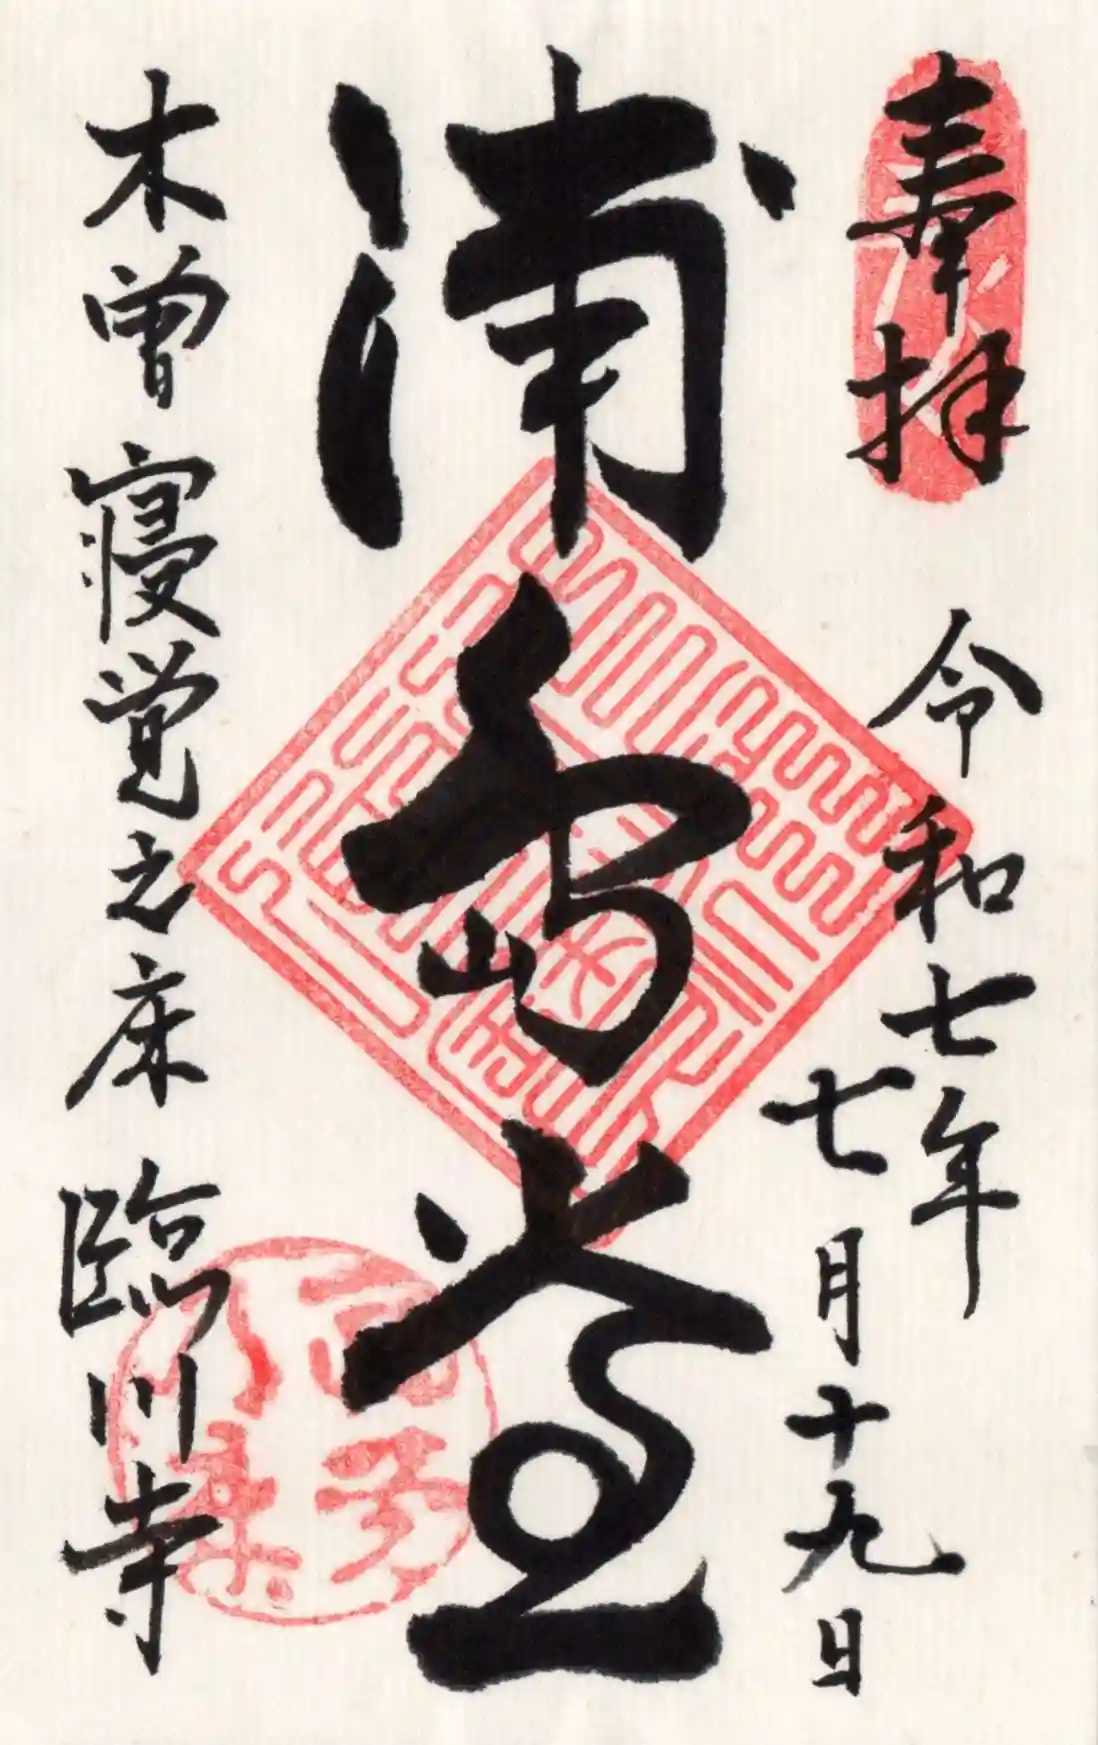 奉拝
令和七年
七月十九日
浦島堂
木曽 寝覚之床 臨川寺